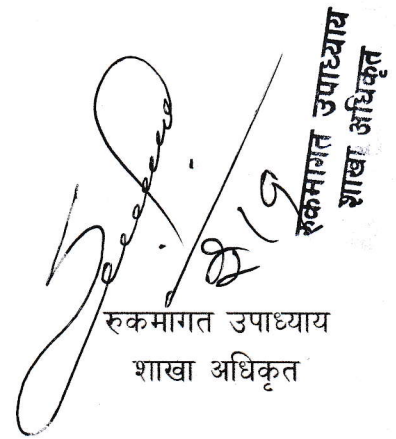 रुकमागत उपाध्याय
शाखा अधिकृत
रुकमागत उपाध्याय
शाखा अधिकृत